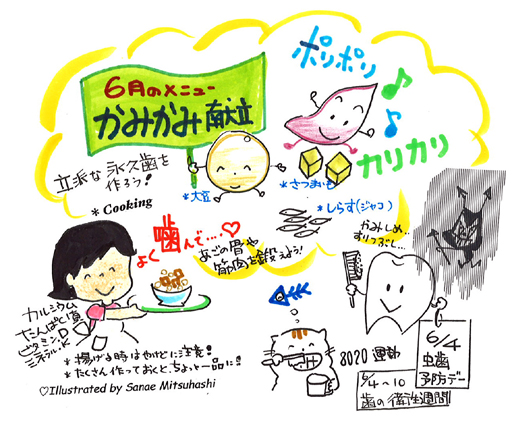 6月のメニュー
かみかみ献立
ポリポリ
カリカリ
*大豆
*さつまいも
*しらす(ジャコ)
立派な永久歯を
作ろう!
* Cooking
よく噛んで…♡
あごの骨や
筋肉を鍛えよう!
かみしめ…
すりつぶし…
カルシウム
たんぱく質
ビタミンD
ミネラル.K
*揚げる時はやけどに注意!
*たくさん作っておくと、ちょっと一品に!!
♡Illustrated by Sanae Mitsuhashi
8020運動
6/4~10
歯の衛生週間
6/4
虫歯
予防デー